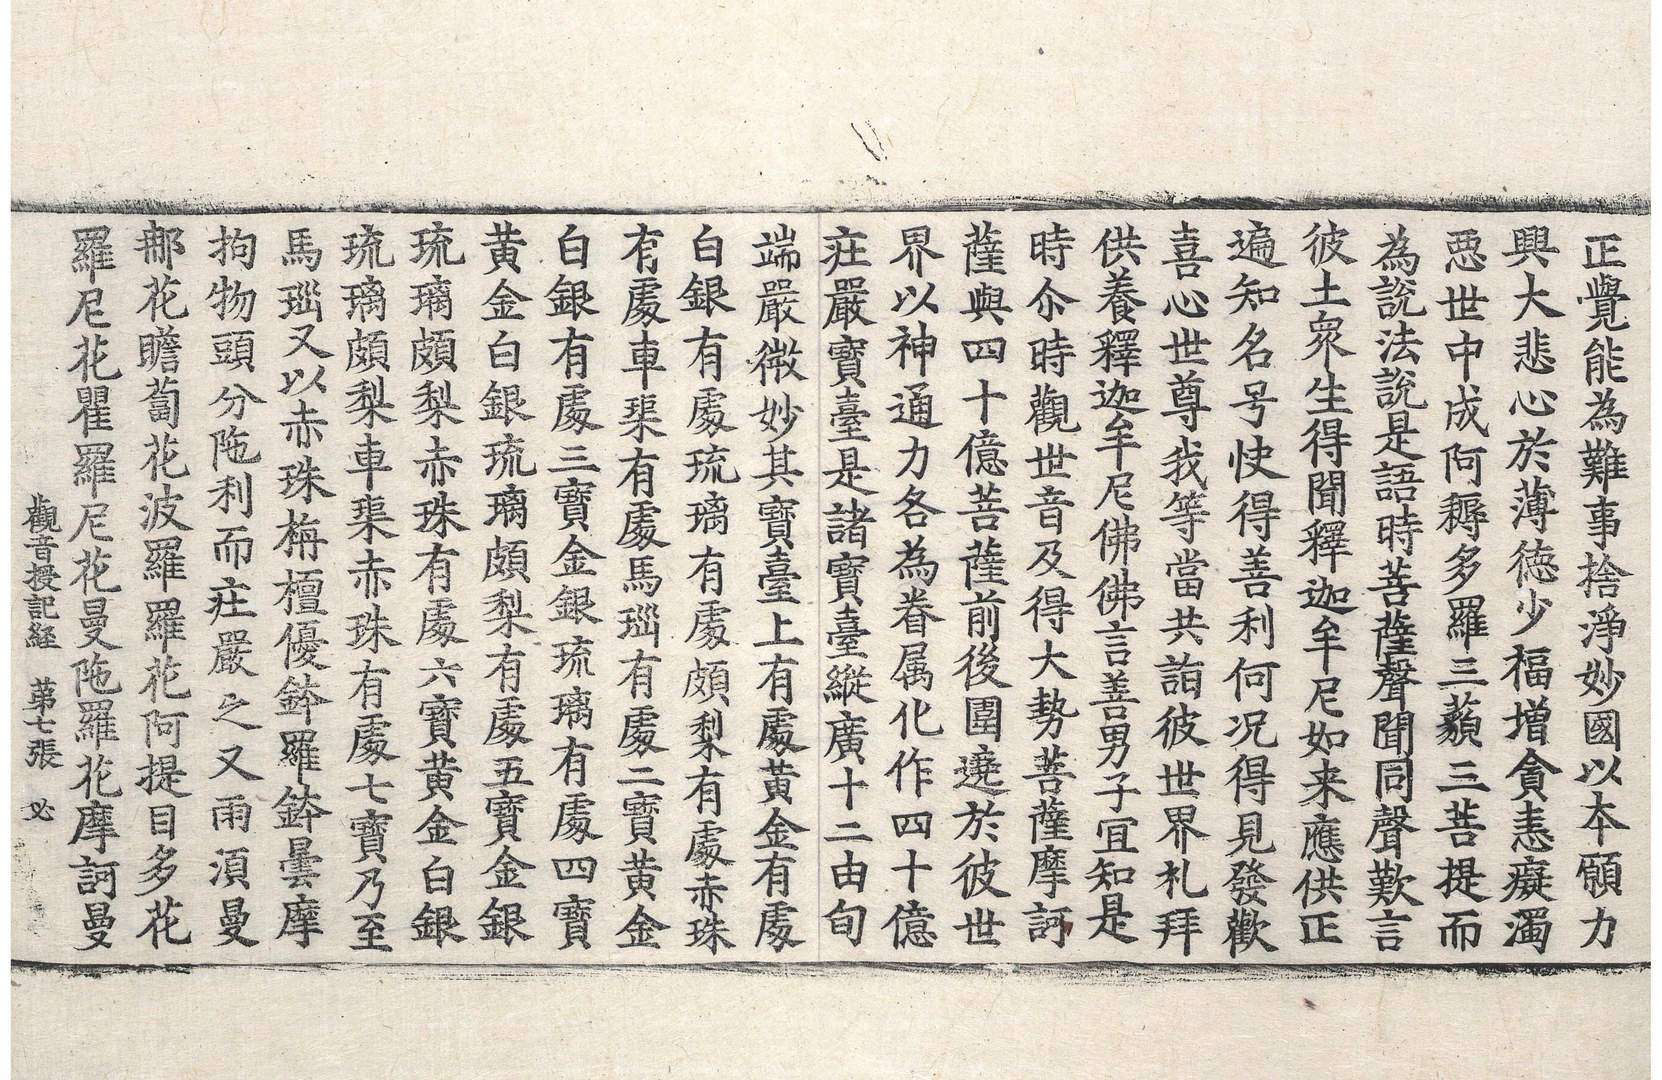 正覺能為難事捨淨妙國以本願力
興大悲心於薄德少福增貪恚癡濁
惡世中成阿耨多羅三藐三菩提而
為說法說是語時菩薩聲聞同聲歎言
彼土眾生得聞釋迦牟尼如来應供正
遍知名号快得善利何况得見發歡
喜心世尊我等當共詣彼世界礼拜
供養釋迦牟尼佛佛言善男子宜知是
時尒時觀世音及得大勢菩薩摩訶
薩與四十億菩薩前後圍遶於彼世
界以神通力各為眷属化作四十億
莊嚴寶臺是諸寶臺縱廣十二由旬
端嚴微妙其寶臺上有處黃金有處
白銀有處琉璃有處頗梨有處赤珠
有處車𤦲有處馬瑙有處二寶黃金
白銀有處三寶金銀琉璃有處四寶
黃金白銀琉璃頗梨有處五寶金銀
琉璃頗梨赤珠有處六寶黃金白銀
琉璃頗梨車𤦲赤珠有處七寶乃至
馬瑙又以赤珠栴檀優鉢羅鉢曇摩
拘物頭分陁利而莊嚴之又雨湏曼
那花瞻蔔花波羅羅花阿提目多花
羅尼花瞿羅羅尼花曼陁羅花摩訶曼
觀音授記経 苐七張 必